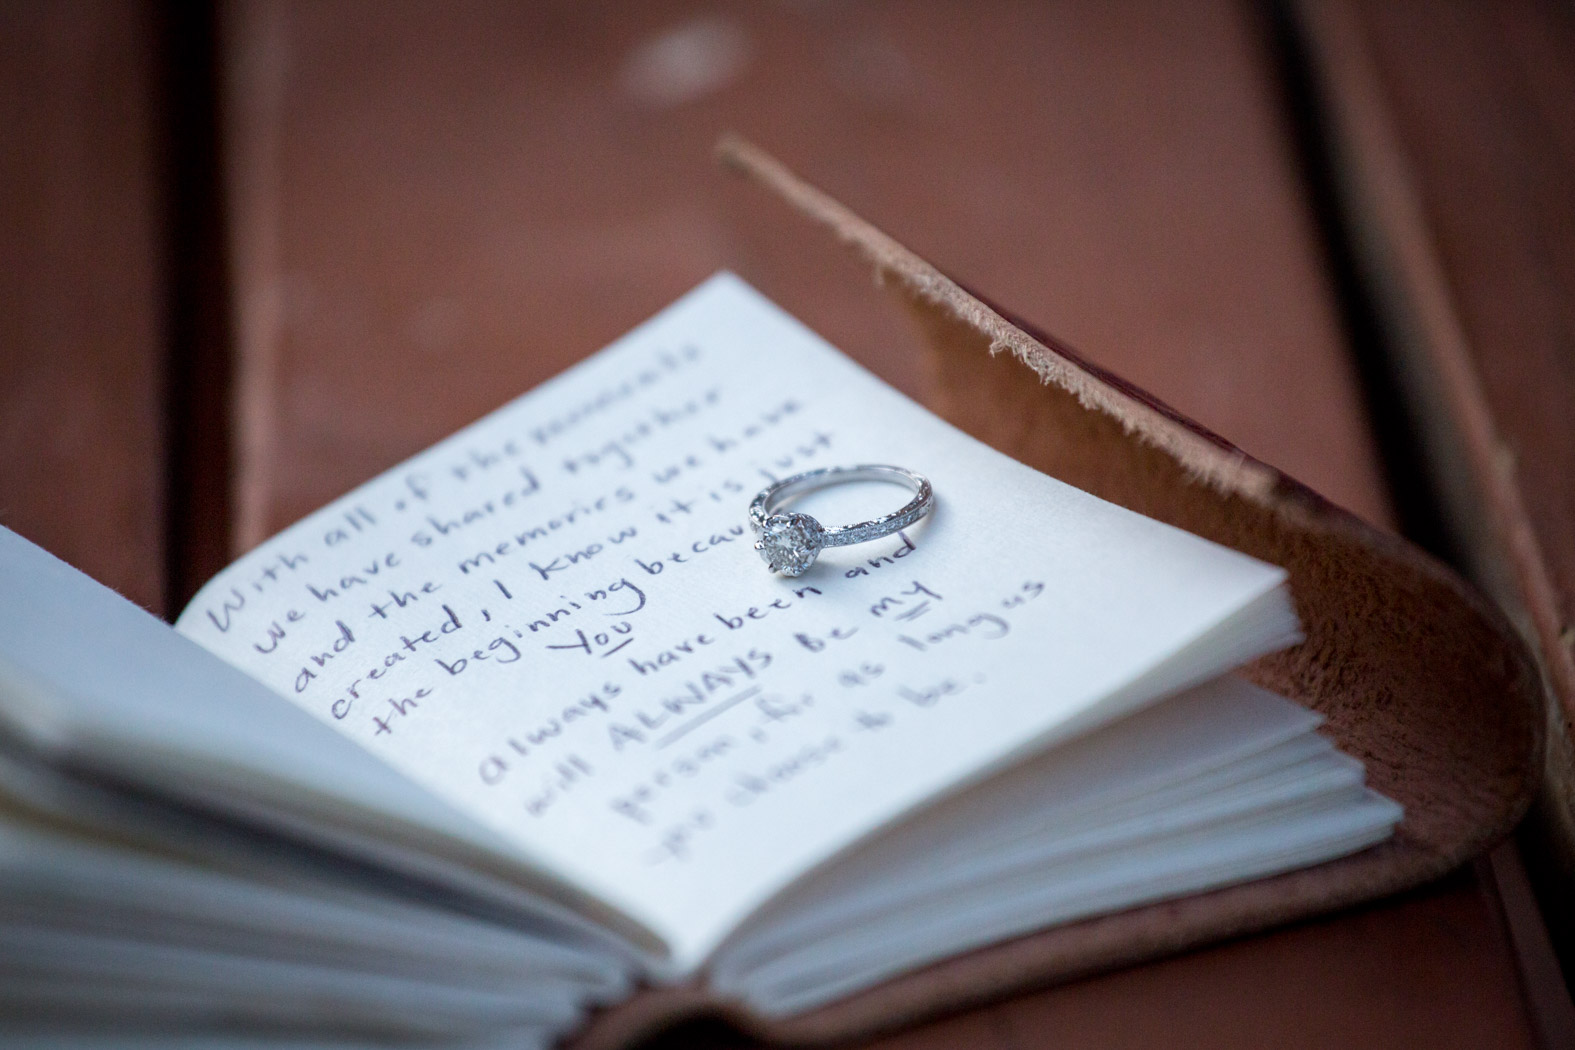 With all of the moments
we have shared together
and the memories we have
created, I know it is just
the beginning becau
You
always have been and
will ALWAYS be my
person, for as long as
you choose to be.